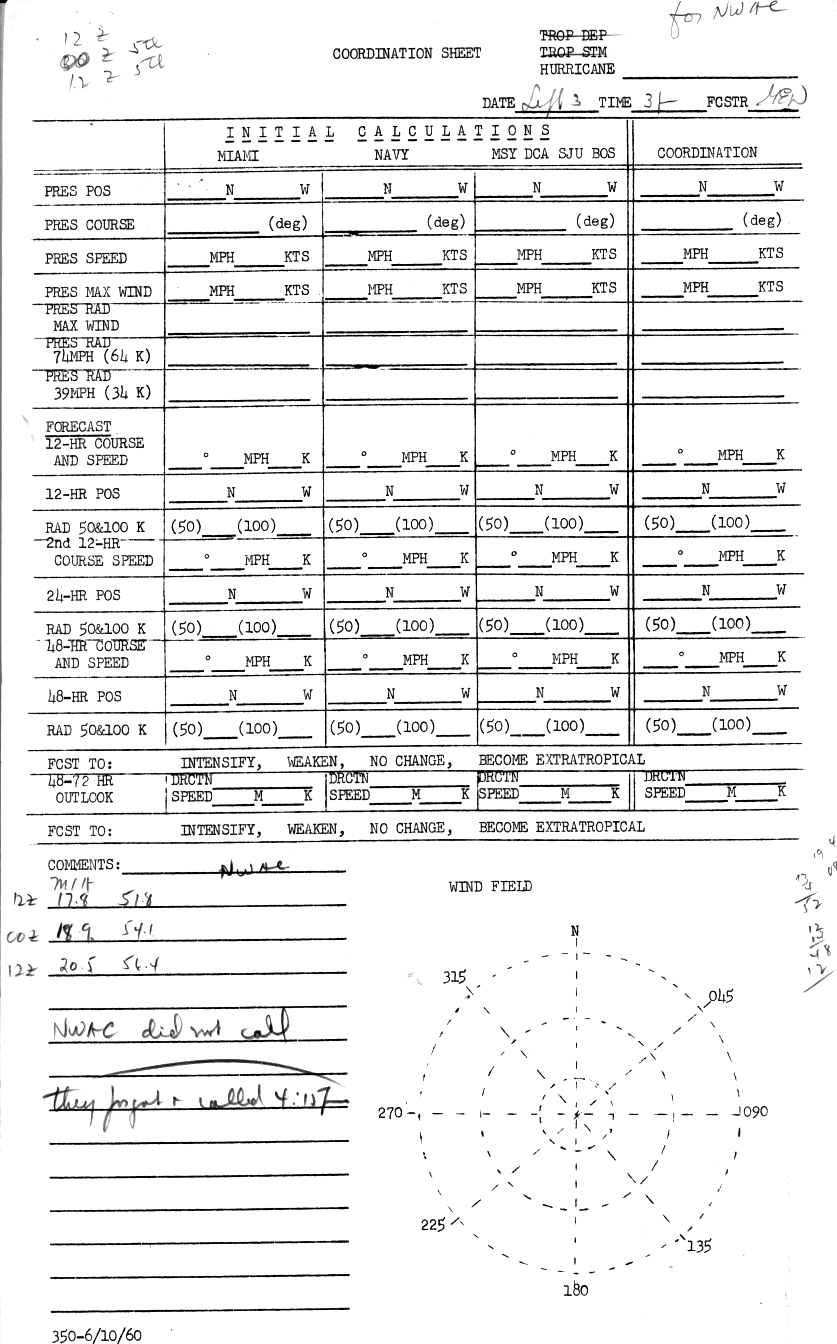 for NWAC
12 Z
00 Z 5th
12 Z 5th
COORDINATION SHEET
TROP DEP
TROP STM
HURRICANE
DATE Sept 3 TIME FCSTR
INITIAL CALCULATIONS
MIAMI NAVY MSY DCA SJU BOS COORDINATION
PRES POS N W N W N W N W
PRES COURSE (deg) (deg) (deg) (deg)
PRES SPEED MPH KTS MPH KTS MPH KTS MPH KTS
PRES MAX WIND MPH KTS MPH KTS MPH KTS MPH KTS
PRES RAD
MAX WIND
PRES RAD
74MPH (64 K)
PRES RAD
39MPH (34 K)
FORECAST
12-HR COURSE
AND SPEED ° MPH K ° MPH K ° MPH K ° MPH K
12-HR POS N W N W N W N W
RAD 50&100 K (50) (100) (50) (100) (50) (100) (50) (100)
2nd 12-HR
COURSE SPEED ° MPH K ° MPH K ° MPH K ° MPH K
24-HR POS N W N W N W N W
RAD 50&100 K (50) (100) (50) (100) (50) (100) (50) (100)
48-HR COURSE
AND SPEED ° MPH K ° MPH K ° MPH K ° MPH K
48-HR POS N W N W N W N W
RAD 50&100 K (50) (100) (50) (100) (50) (100) (50) (100)
FCST TO: INTENSIFY, WEAKEN, NO CHANGE, BECOME EXTRATROPICAL
48-72 HR DRCTN DRCTN DRCTN DRCTN
OUTLOOK SPEED M K SPEED M K SPEED M K SPEED M K
FCST TO: INTENSIFY, WEAKEN, NO CHANGE, BECOME EXTRATROPICAL
COMMENTS: NWAC
MIA
12Z 17.8 51.8
00Z 18.9 54.1
12Z 20.5 56.4
NWAC did not call
they forgot + called
WIND FIELD
N
315
045
270
090
225
135
180
350-6/10/60